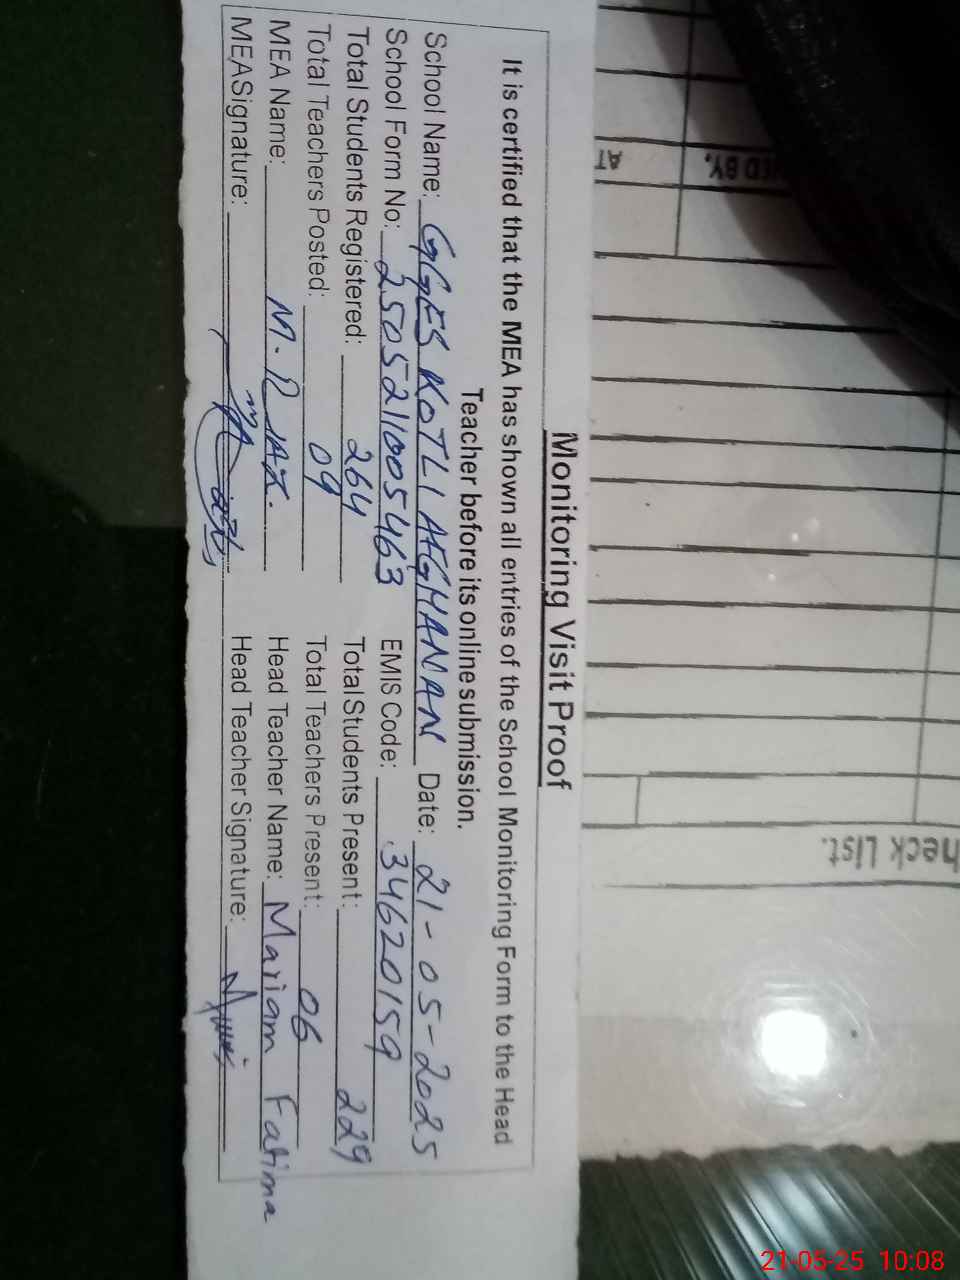 Monitoring Visit Proof
It is certified that the MEA has shown all entries of the School Monitoring Form to the Head
Teacher before its online submission.
School Name: GGES KOTLI AFGHANAN Date: 21-05-2025
School Form No: 25052110005463 EMIS Code: 34620159
Total Students Registered: 264 Total Students Present: 229
Total Teachers Posted: 09 Total Teachers Present: 06
MEA Name: M. RIAZ. Head Teacher Name: Mariam Fatima
MEASignature: Head Teacher Signature:
heck List.
ED BY.
AT
21-05-25 10:08